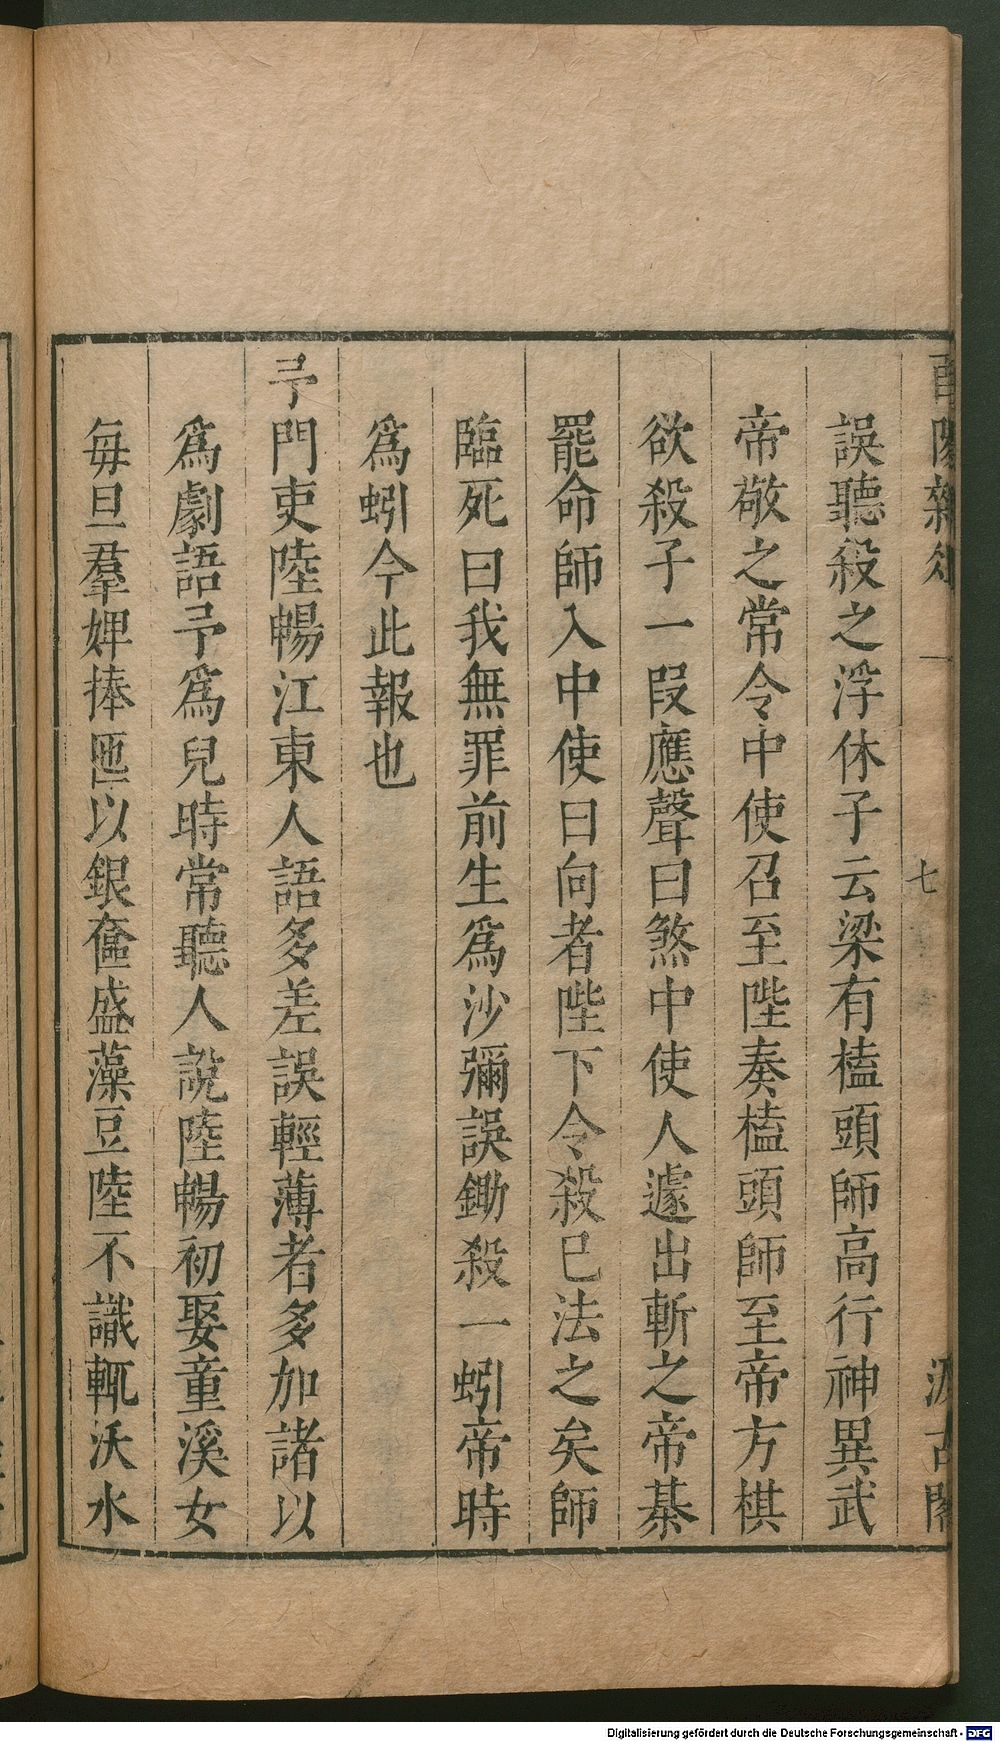 酉陽雜俎 一 七 汲古閣
誤聽殺之浮休子云梁有榼頭師高行神異武
帝敬之常令中使召至陛奏榼頭師至帝方棋
欲殺子一叚應聲曰煞中使人遽出斬之帝棊
罷命師入中使曰向者陛下令殺已法之矣師
臨死曰我無罪前生爲沙彌誤鋤殺一蚓帝時
爲蚓今此報也
予門吏陸暢江東人語多差誤輕薄者多加諸以
爲劇語予爲兒時常聽人說陸暢初娶童溪女
每旦羣婢捧匜以銀奩盛藻豆陸不識輒沃水
Digitalisierung gefördert durch die Deutsche Forschungsgemeinschaft - DFG